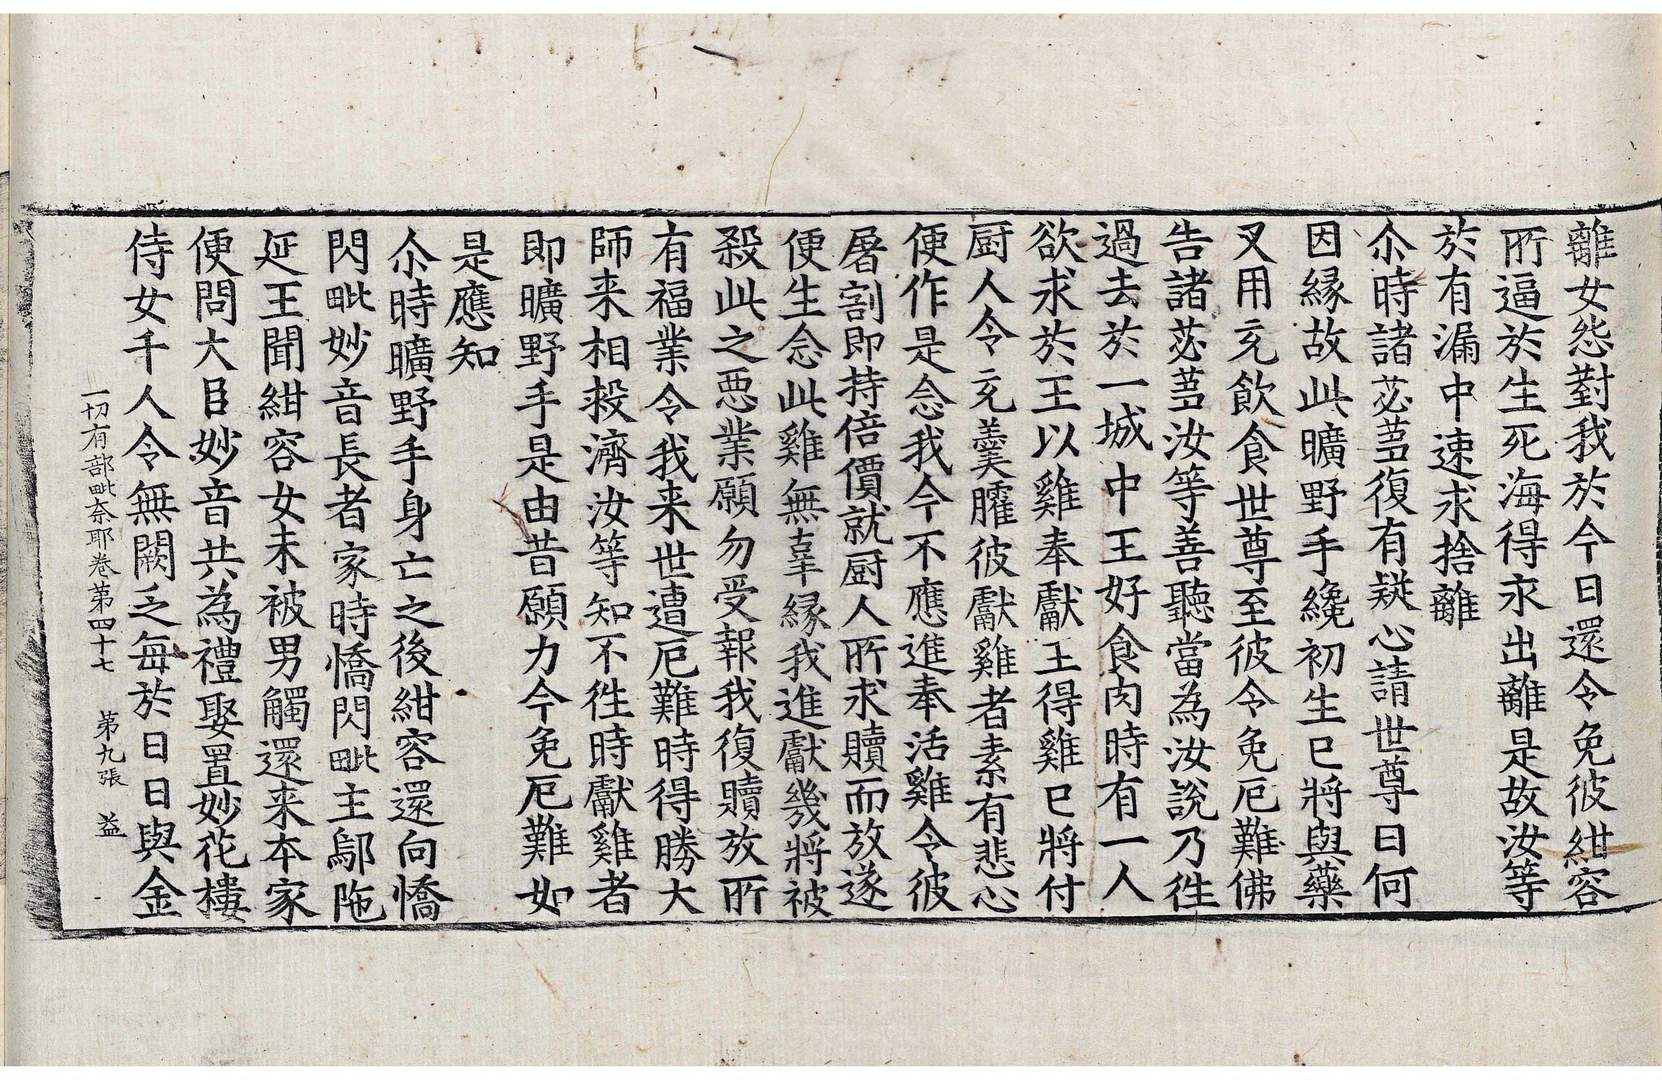 離女怨對我於今日還令免彼紺容
所逼於生死海得求出離是故汝等
於有漏中速求捨離
尒時諸苾芻復有疑心請世尊曰何
因緣故此曠野手纔初生已將與藥
叉用充飲食世尊至彼令免厄難佛
告諸苾芻汝等善聽當為汝說乃徃
過去於一城中王好食肉時有一人
欲求於王以雞奉獻王得雞已將付
厨人令充羹臛彼獻雞者素有悲心
便作是念我今不應進奉活雞令彼
屠割即持倍價就厨人所求贖而放遂
便生念此雞無辜緣我進獻幾將被
殺此之惡業願勿受報我復贖放所
有福業令我来世遭厄難時得勝大
師来相救濟汝等知不徃時獻雞者
即曠野手是由昔願力今免厄難如
是應知
尒時曠野手身亡之後紺容還向憍
閃毗妙音長者家時憍閃毗主鄔陁
延王聞紺容女未被男觸還来本家
便問大臣妙音共為禮娶置妙花樓
侍女千人令無闕乏每於日日與金
一切有部毗奈耶卷第四十七 第九張 益